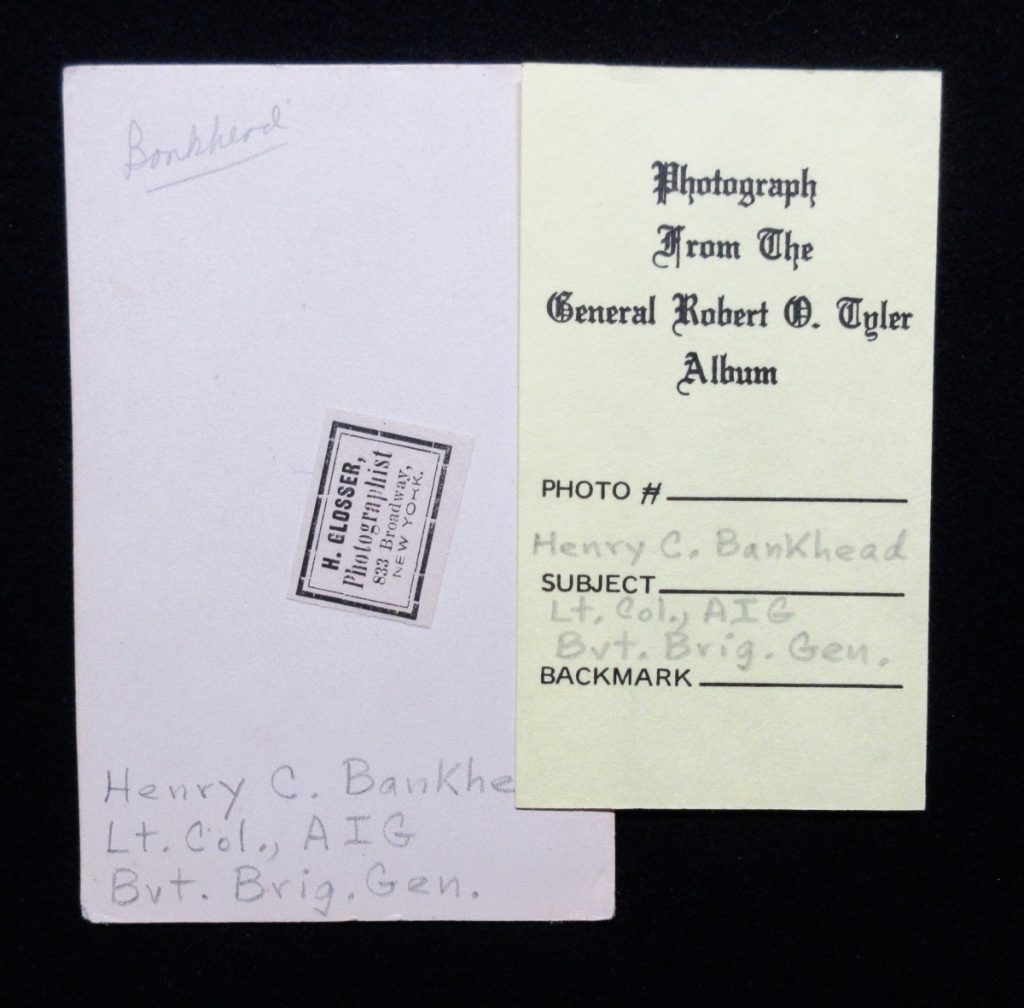 Bankhead
H. GLOSSER,
Photographist
833 Broadway,
NEW YORK.
Henry C. Bankhe
Lt. Col., AIG
Bvt. Brig. Gen.
Photograph
From The
General Robert O. Tyler
Album
PHOTO #
Henry C. Bankhead
SUBJECT
Lt. Col., AIG
Bvt. Brig. Gen.
BACKMARK